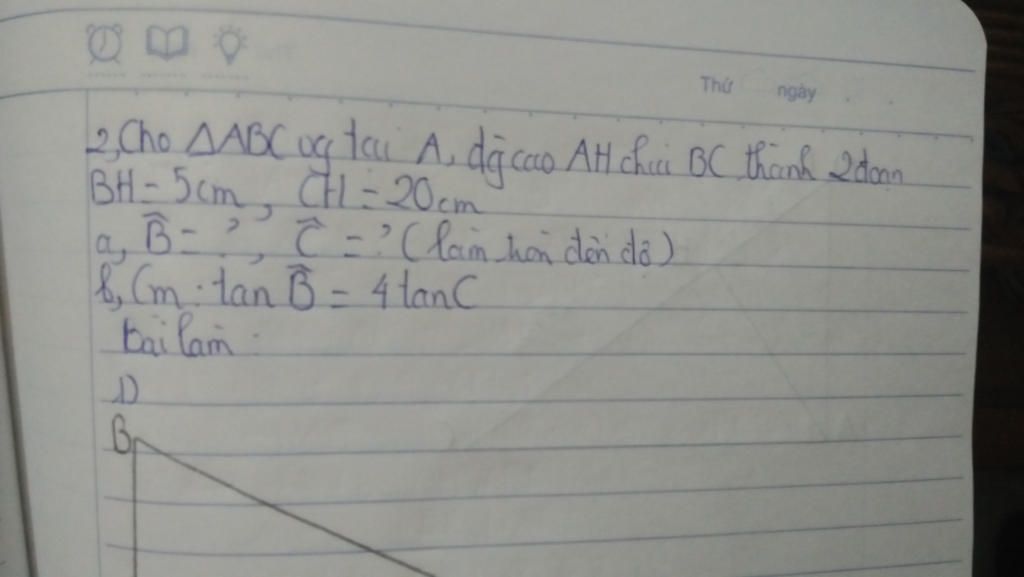 Thứ ngày
2, Cho ΔABC vg tại A, đg cao AH chia BC thành 2 đoạn
BH = 5cm, CH = 20cm
a, B̂ = ?, Ĉ = ? (làm tròn đến độ)
b, Cm: tan B̂ = 4 tanC
Bài làm:
1)
B